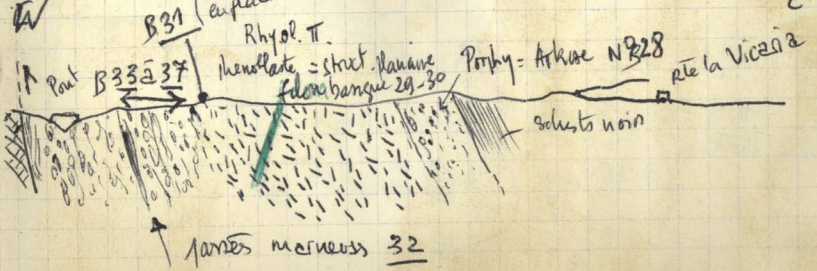 W
B31
Rhyol. π.
Pont B33 à 37
= struct. planaire
29-30
Porphy = Arkose N°328
rte la Vicaria
schists noirs
passées marneuses 32